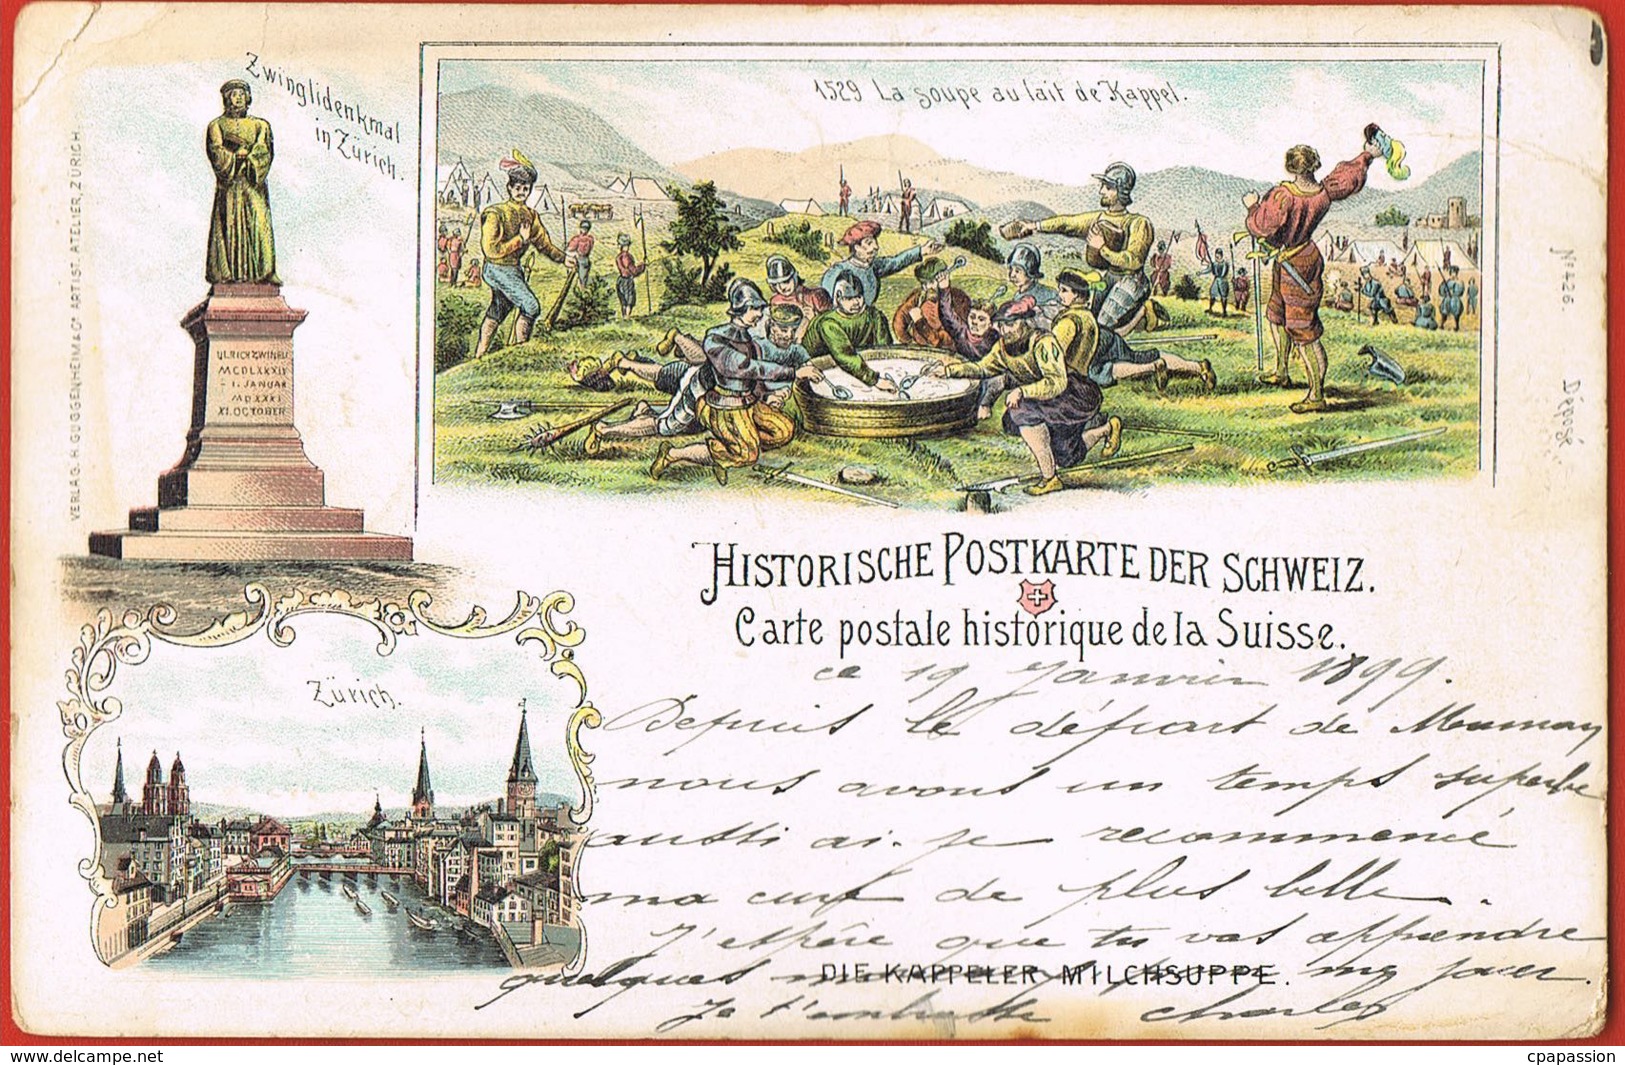 Zwinglidenkmal
in Zürich.
1529 La soupe au lait de Kappel.
VERLAG. H. GUGGENHEIM & Co ARTIST. ATELIER, ZÜRICH.
ULRICH ZWINGLI
MCDLXXXIV
1. JANUAR
MDXXXI
XI. OCTOBER
No 426.
Déposé.
HISTORISCHE POSTKARTE DER SCHWEIZ.
Carte postale historique de la Suisse.
Zürich.
ce 19 Janvier 1899.
Depuis le départ de Maman
nous avons un temps superbe
aussi ai-je recommencé
ma de plus belle.
J'espère que tu vas apprendre
quelques me jouer.
DIE KAPPELER MILCHSUPPE.
Je t'embrasse Charles
delcampe.net
cpapassion